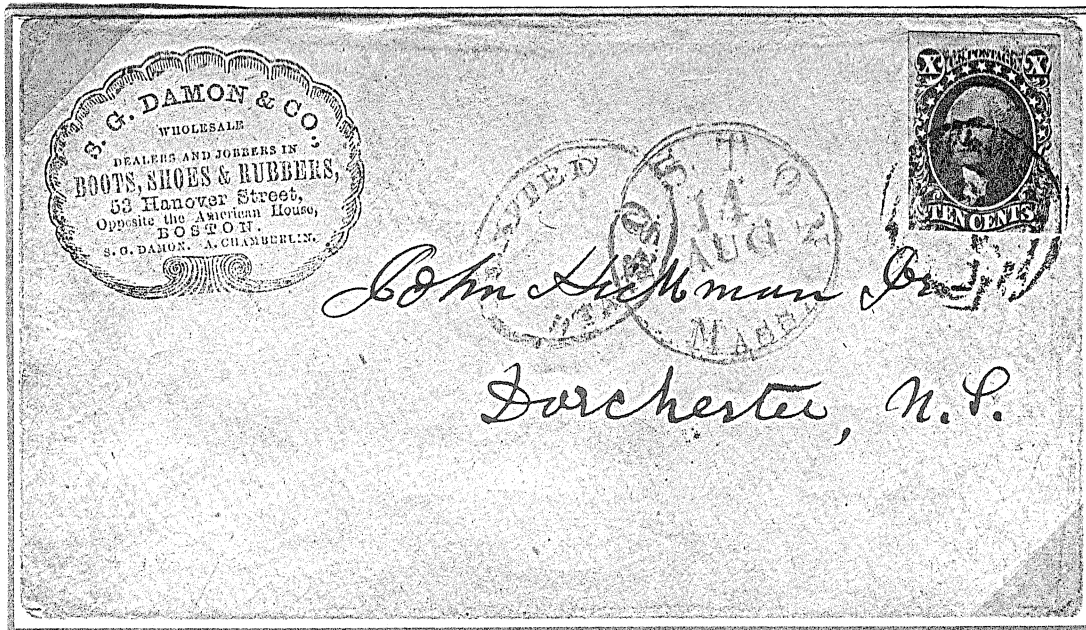 S. G. DAMON & CO.,
WHOLESALE
DEALERS AND JOBBERS IN
BOOTS, SHOES & RUBBERS,
53 Hanover Street,
Opposite the American House,
BOSTON.
S. G. DAMON. A. CHAMBERLIN.
X U.S. POSTAGE X
TEN CENTS
BOSTON
14
AUG
MASS
John Hickman
Dorchester, N.S.